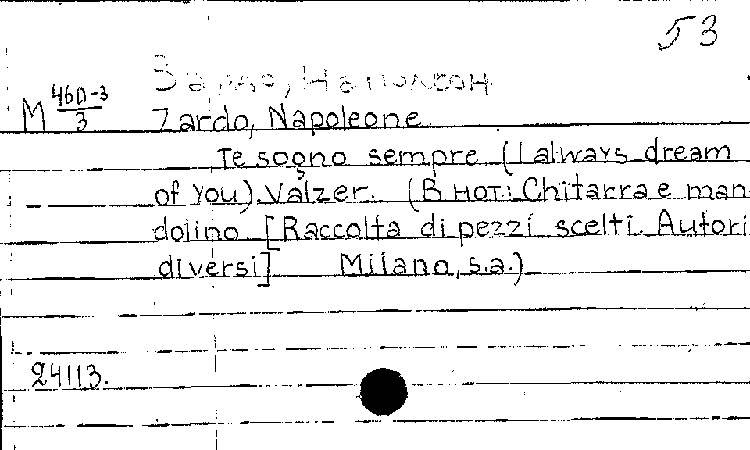 53
Зардо, Наполеон
M 460-3/3 Zardo, Napoleone
Te sogno sempre (I always dream
of you). Valzer. (В нот.: Chitarra e man
dolino [Raccolta di pezzi scelti. Autori
diversi] Milano, s.a.)
24113.